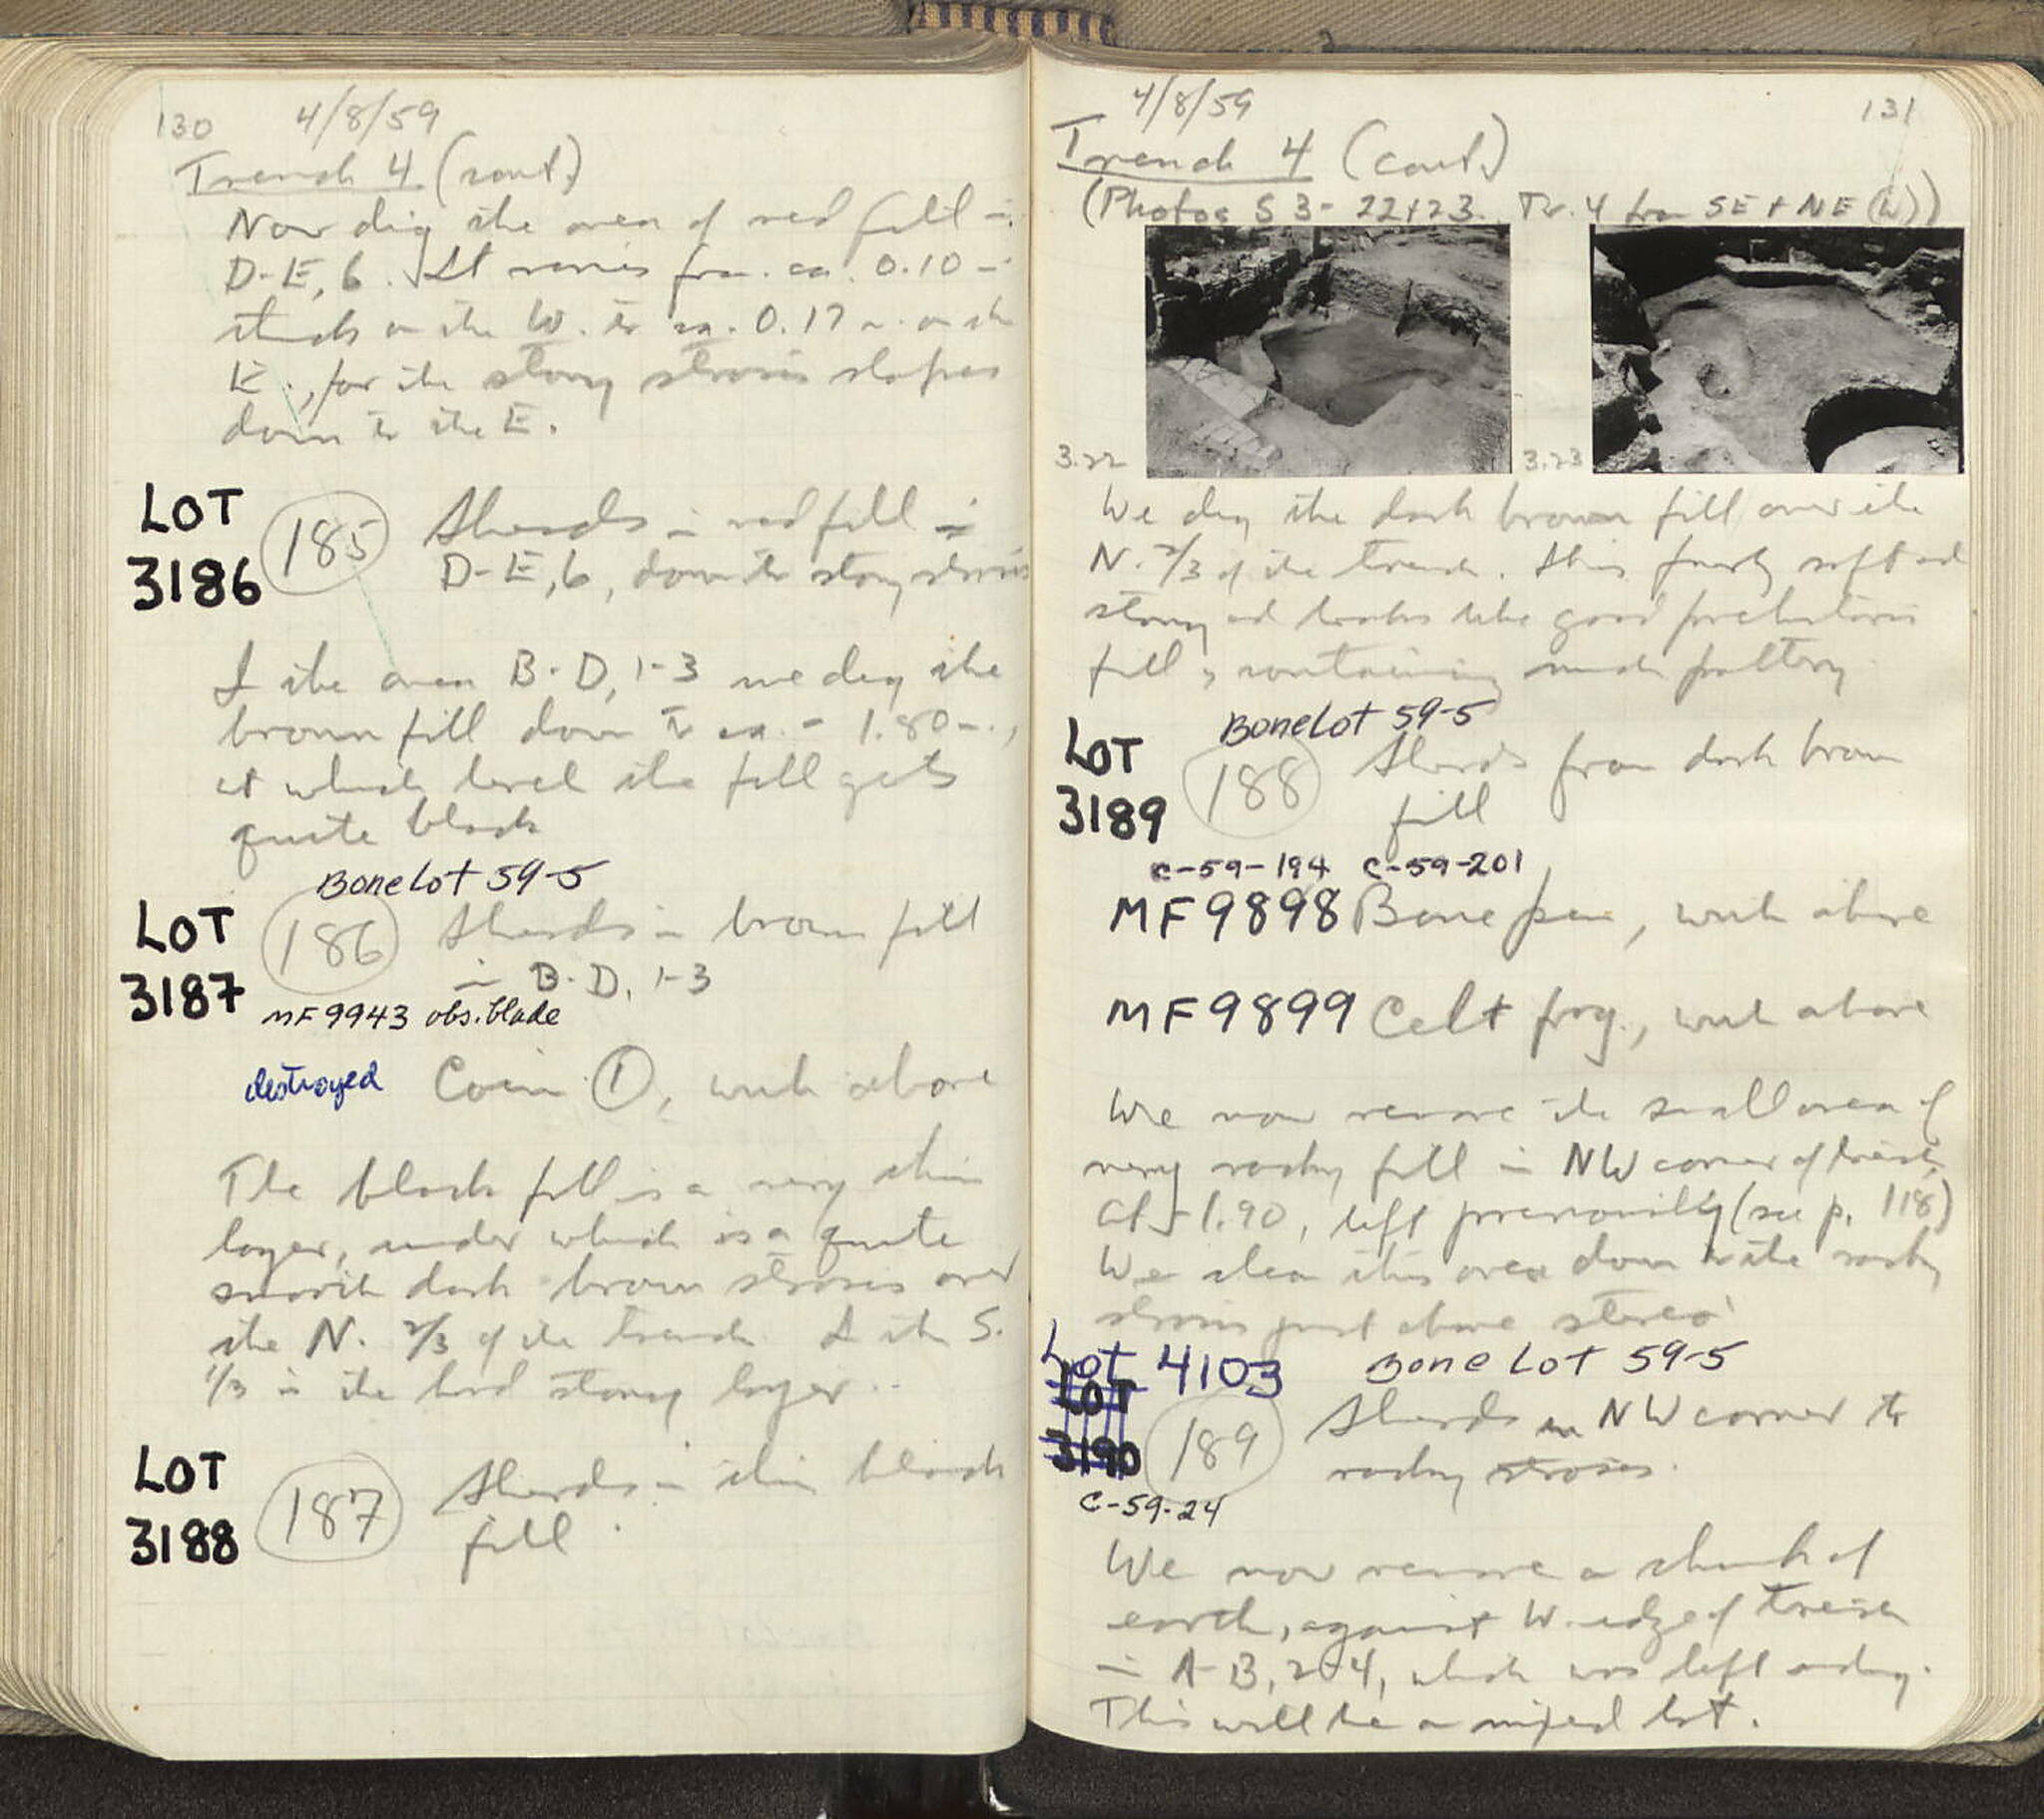 130 4/8/59
Trench 4 (cont.)
Now dig the area of red fill in
D-E, 6. It varies from ca. 0.10 m.
thick on the W. to ca. 0.17 m. on the
E., for the stony stroses slopes
down to the E.
LOT 3186 (185) Sherds in red fill in
D-E, 6, down to stony stroses
In the area B-D, 1-3 we dig the
brown fill down to ca. - 1.80 m.,
at which level the fill gets
quite black
Bone Lot 59-5
LOT 3187 (186) Sherds in brown fill
in B-D, 1-3
MF 9943 obs. blade
destroyed Coin (1), with above
The black fill is a very thin
layer, under which is a quite
smooth dark brown stroses over
the N. 2/3 of the trench. In the S.
1/3 is the hard stony layer.
LOT 3188 (187) Sherds in thin black
fill.
4/8/59 131
Trench 4 (cont.)
(Photos S 3- 22+23. Tr. 4 from SE + NE (W))
3.22 3.23
We dig the dark brown fill over the
N. 2/3 of the trench. It is fairly soft and
stony and looks like good prehistoric
fill, containing much pottery.
Bone Lot 59-5
LOT 3189 (188) Sherds from dark brown
fill
C-59-194 C-59-201
MF 9898 Bone pin, with above
MF 9899 Celt frag., with above
We now remove the small area of
very rocky fill in NW corner of trench,
at -1.90, left previously (see p. 118)
We clean this area down to the rocky
stroses just above stereo
Lot 4103 Bone Lot 59-5
LOT 3190 (189) Sherds in NW corner to
rocky stroses.
C-59-24
We now remove a chunk of
earth, against W. edge of trench
in A-B, 2-4, which was left
This will be a mixed lot.